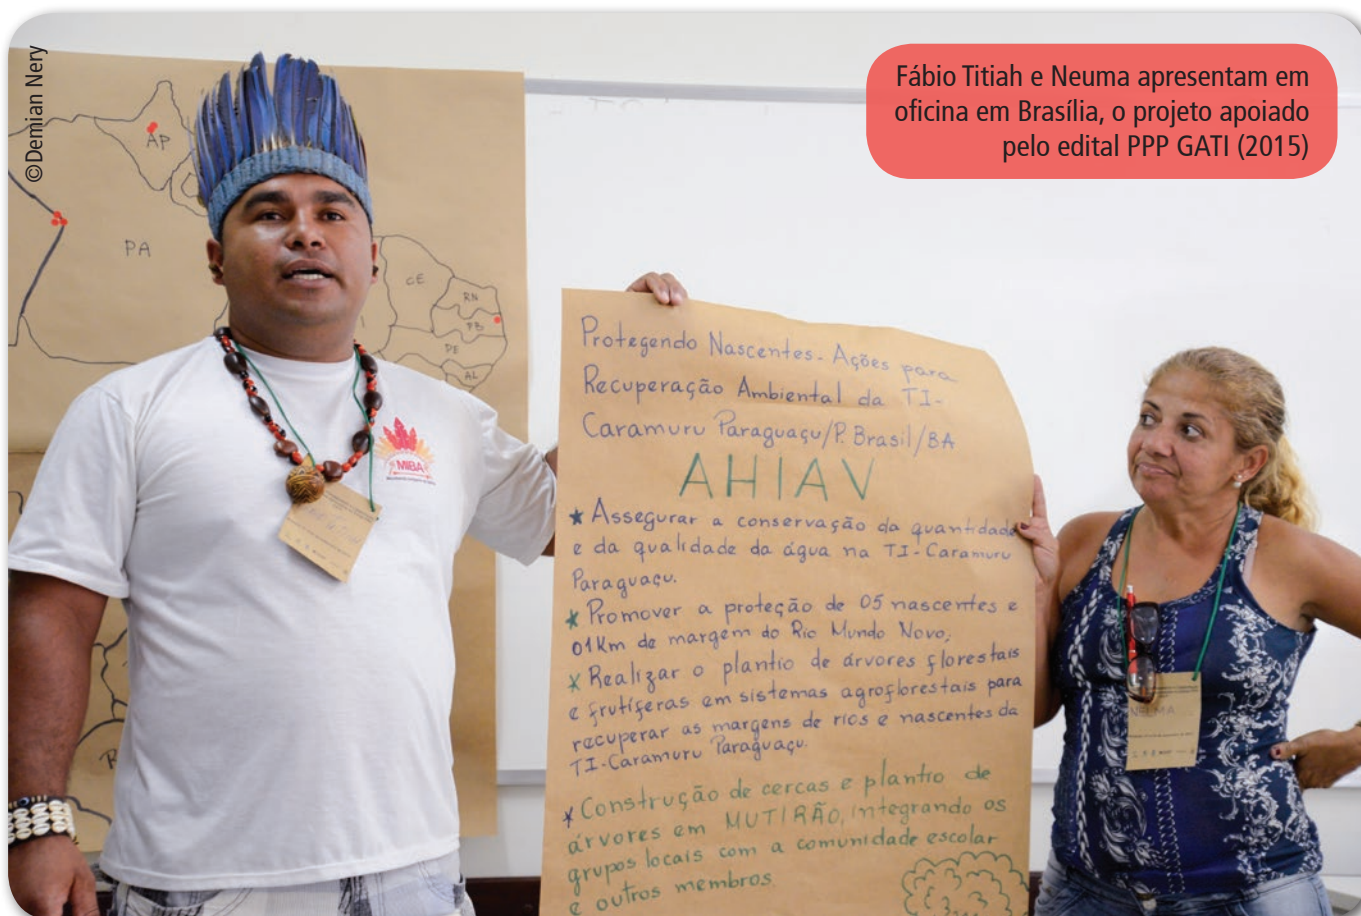 ©Demian Nery
Fábio Titiah e Neuma apresentam em
oficina em Brasília, o projeto apoiado
pelo edital PPP GATI (2015)
AP
PA
CE
RN
PB
PE
AL
MIBA
Protegendo Nascentes - Ações para
Recuperação Ambiental da TI-
Caramuru Paraguaçu/P. Brasil/BA
AHIAV
★ Assegurar a conservação da quantidade
e da qualidade da água na TI-Caramuru
Paraguaçu.
★ Promover a proteção de 05 nascentes e
01Km de margem do Rio Mundo Novo;
★ Realizar o plantio de árvores florestais
e frutíferas em sistemas agroflorestais para
recuperar as margens de rios e nascentes da
TI-Caramuru Paraguaçu.
★ Construção de cercas e plantio de
árvores em MUTIRÃO, integrando os
grupos locais com a comunidade escolar
e outros membros.
NEUMA